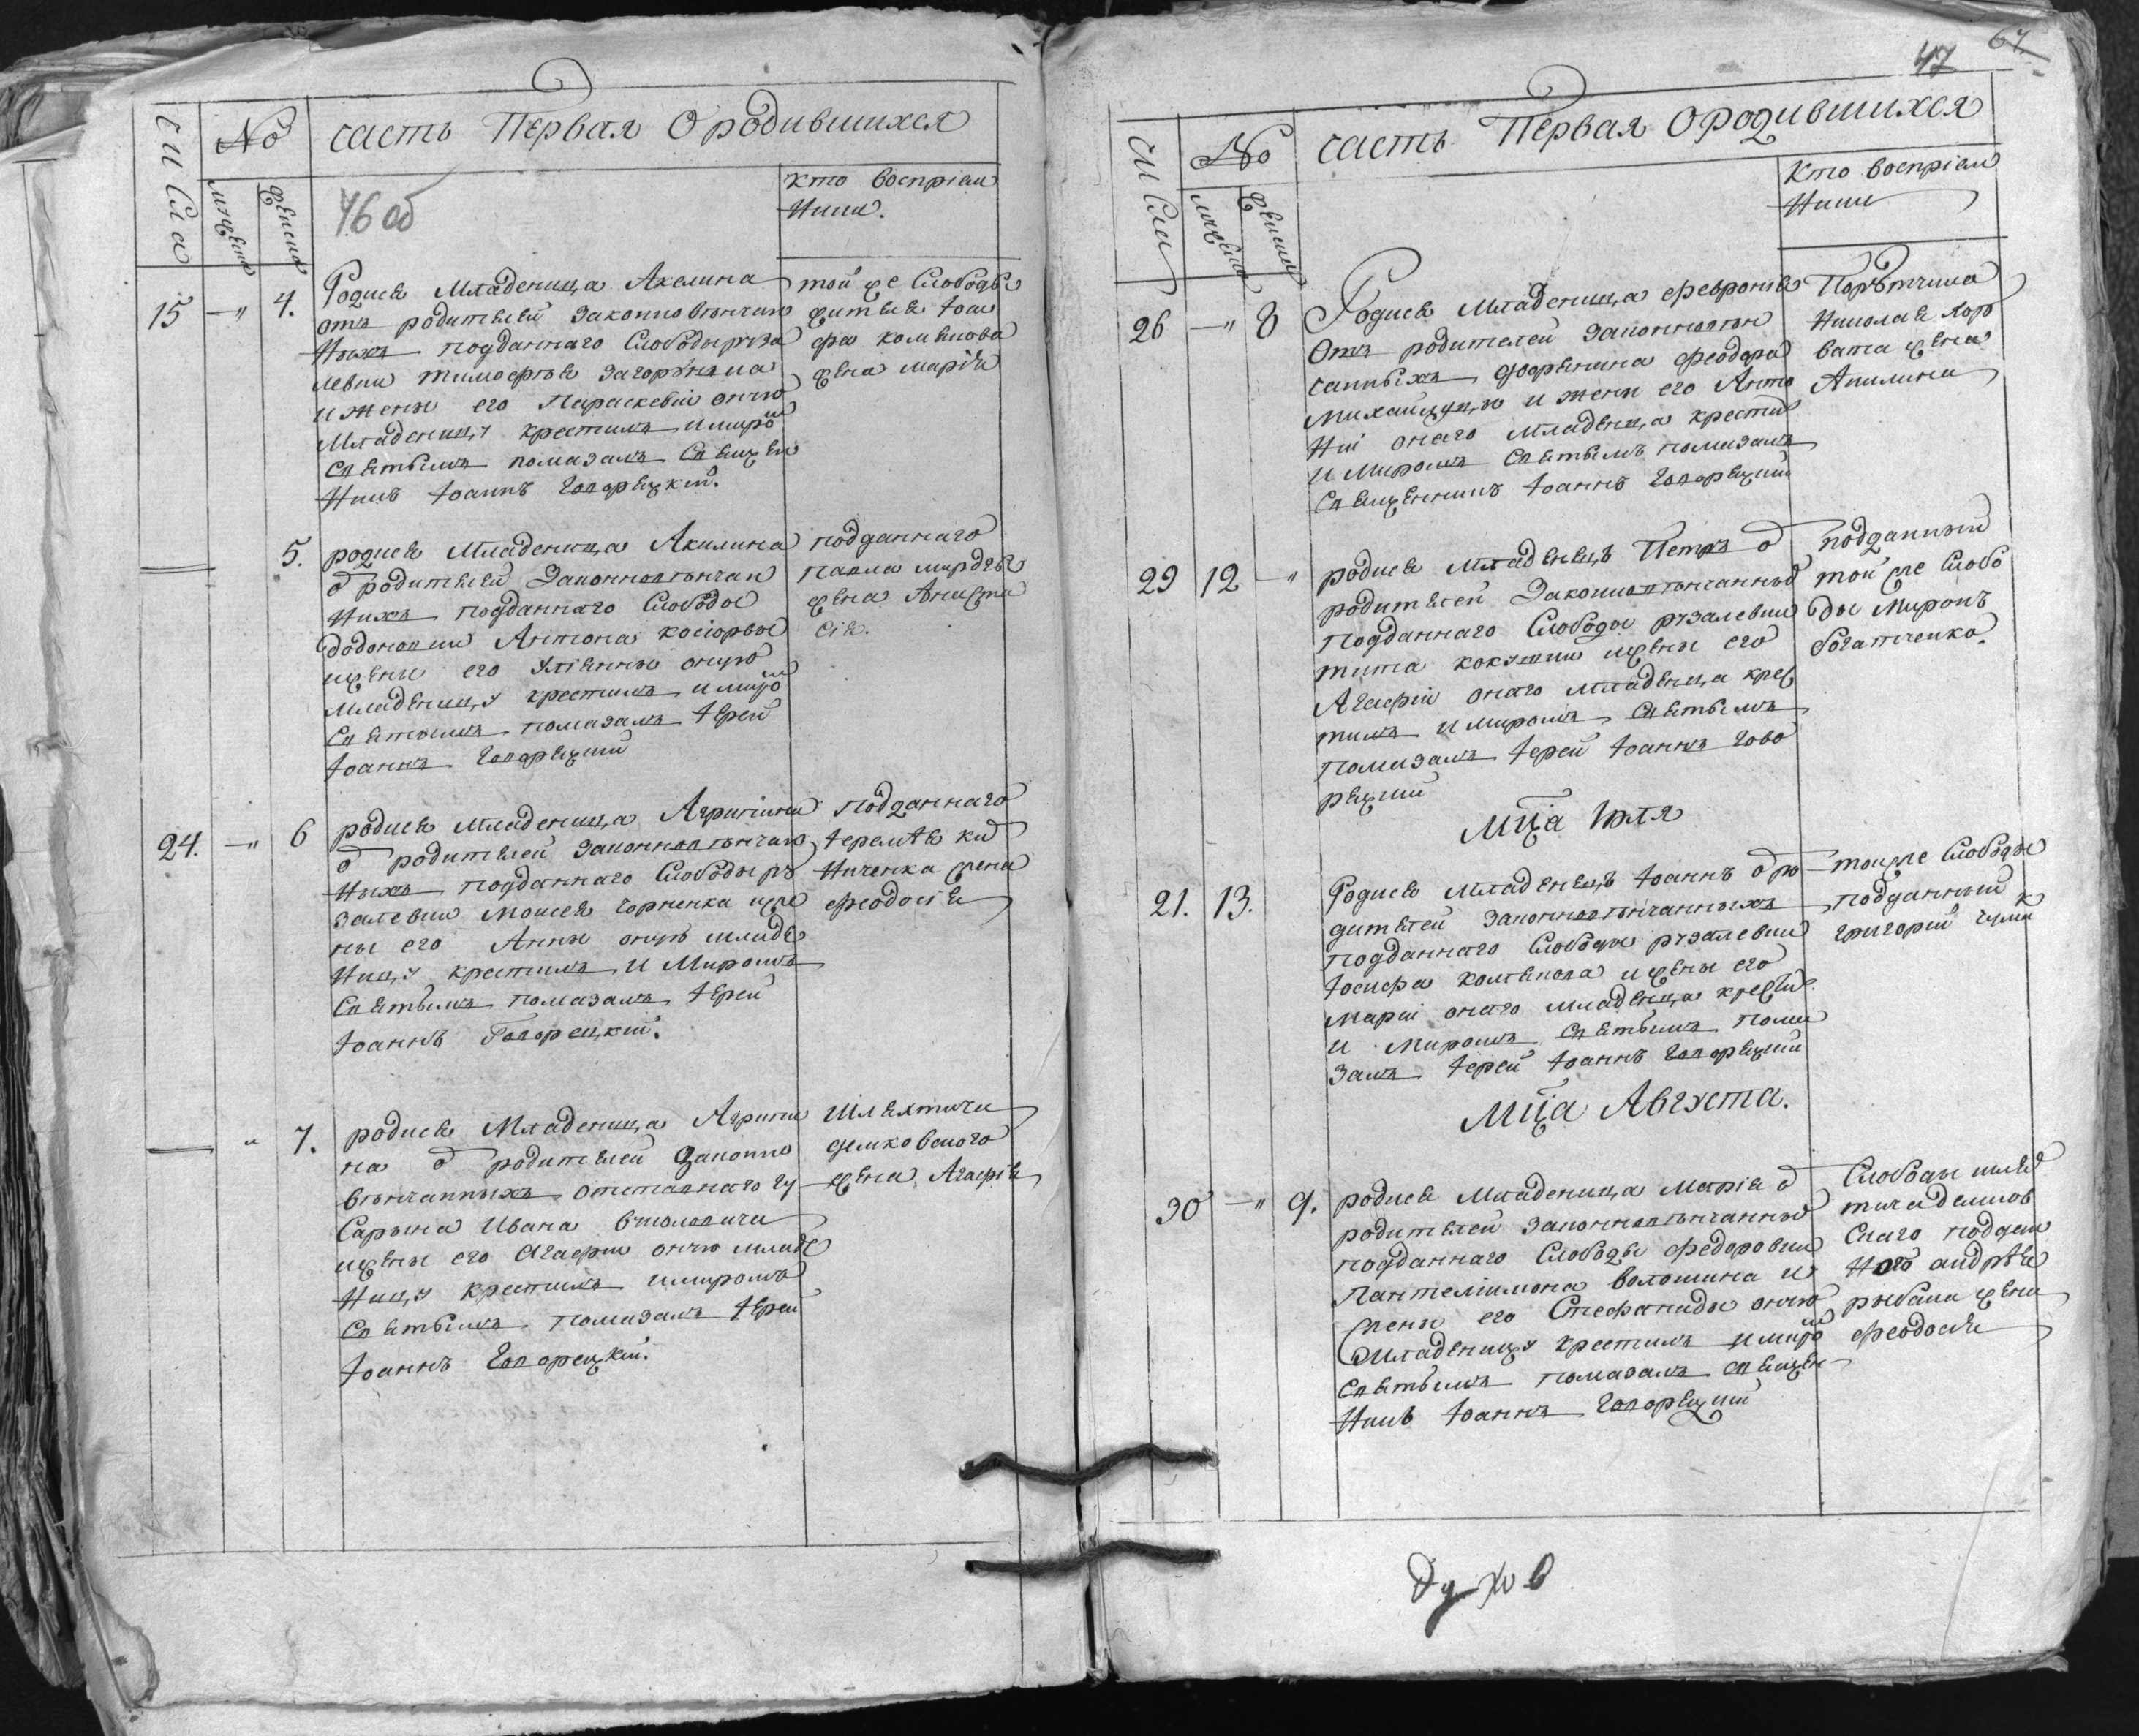 Числа
№
мужеска
женска
часть Первая О родившихся
Кто воспріем
ники.
46 об
15 — " 4.
Родися Младеница Акелина
отъ родителей законновѣнчан
ныхъ подданнаго Слободы руза
левки тимофея
и жены его Параскевіи оную
Младеницу крестилъ и миро
Святымъ помазалъ Священ
никъ Іоаннъ Говорецкій.
той же Слободы
жителя Іоси
фа коленова
жена марія
5.
родися Младеница Акилина
ѿ родителей Законновѣнчан
ныхъ подданнаго Слободы
Антона
ижены его Уліянны оную
Младеницу крестилъ и миро
Святымъ помазалъ Іерей
Іоаннъ Говорецкій
подданнаго
павла
жена Анаста
сія.
24. — " 6
родися Младеница Агрипина
ѿ родителей законновѣнчан
ныхъ подданнаго Слободы ру
залевки Моисея Чорненка иже
ны его Анны оную младе
ницу крестилъ и Миромъ
Святымъ помазалъ Іерей
Іоаннъ Говорецкій.
подданнаго
Іеремѣя ки
ниченка жена
феодосія
" 7.
родися Младеница Агрипи
на ѿ родителей Законно
вѣнчанныхъ отставнаго гу
сарына Ивана
ижены его Агафіи оную младе
ницу крестилъ имиромъ
Святымъ помазалъ Іерей
Іоаннъ Говорецкій.
Шляхтича
демковского
жена Агафія
47 67
Числа
№
мужеска
женска
часть Первая О родившихся
Кто воспріем
ники
26 — " 8
Родися Младеница февронія
Отъ родителей Законновѣн
чанныхъ дворянина феодора
и жены его Анто
ніи онаго младенца крести
и Миромъ Святымъ помазалъ
Священникъ Іоаннъ Говорецкій
Порутчика
Николая Хор
вата жена
Акилина
29 12 — "
родися Младенецъ Петръ ѿ
родителей Законновѣнчанны
подданнаго Слободы рузалевки
тита ижены его
Агафіи онаго младенца крес
тилъ и миромъ Святымъ
помазалъ Іерей Іоаннъ Гово
рецкій
подданный
той же Слобо
ды Миронъ
богатченко.
Мца Іюля
21. 13.
Родися Младенецъ Іоаннъ ѿ ро
дителей Законновѣнчанныхъ
подданнаго Слободы рузалевки
Іосифа коленова ижены его
Маріи онаго младенца крести
и Миромъ Святымъ пома
залъ Іерей Іоаннъ Говорецкій
тойже Слободы
подданный
григорій чума
к
Мца Августа.
30 — " 9.
родися Младеница Марія ѿ
родителей Законновѣнчанны
подданнаго Слободы федоровки
Пантелимона волошина и
жены его Стефаниды оную
Младеницу крестилъ имиро
Святымъ помазалъ священ
никъ Іоаннъ Говорецкій
Слободы шлях
тича демков
скаго поддан
наго андрѣя
рыбака жена
феодосія
Духов